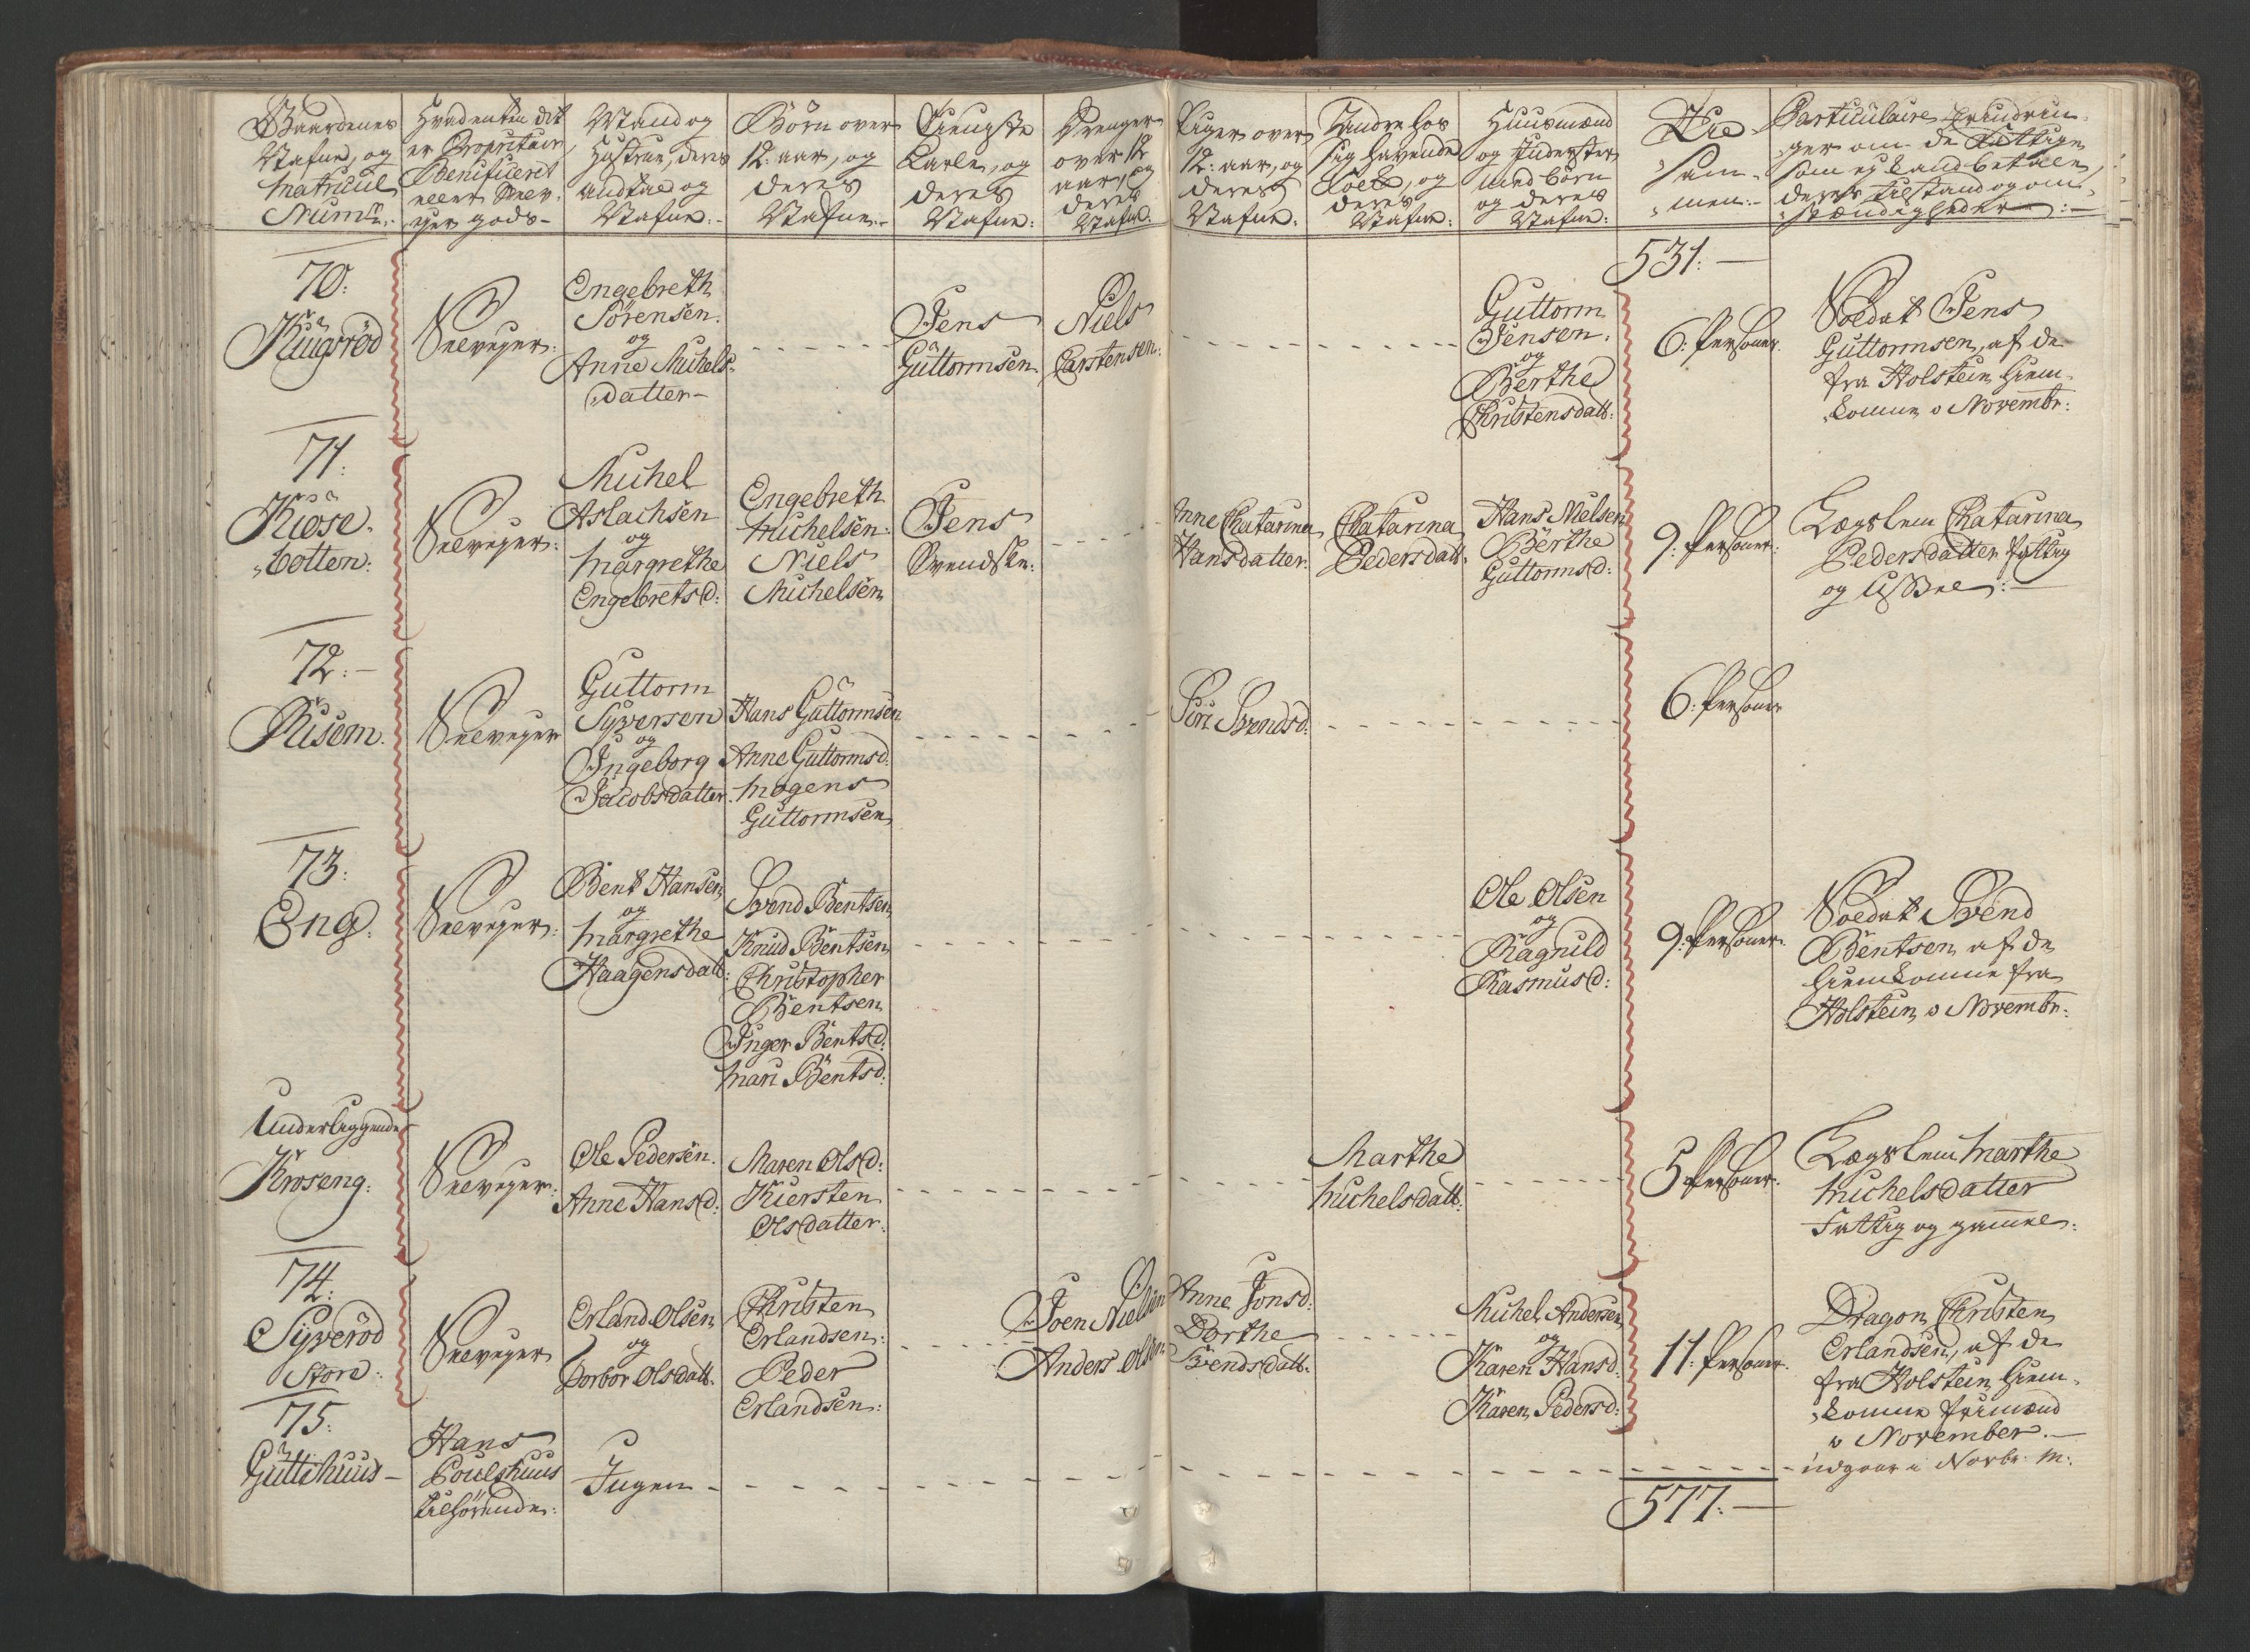 Gaardenes
Nafne, og
Matricul
Num:
Hvad enten det
er Proprietair,
Benificeret
eller Selv-
ejer gods-
Mand og
Hustrue, deres
andtal og
Nafne:-
Börn over
12: aar, og
deres
Nafne:-
Tieneste
Karle, og
deres
Nafne:
Drenger
over 12
aar, og
deres
Nafne:
Piger over
12: aar, og
deres
Nafne:
Andre hos
sig havende
Folk, og
deres
Nafne:
Huusmænd
og Inderster
med börn
og deres
Nafne:
Til-
sam-
men:-
Particulaire Erindrin-
ger om de Fattige
som ej kand betale,
deres tilstand og om-
stændigheder:-
531:-
70:
Kiigsröd
Selvejer:
Engebreth
Sörensen.
og
Anne Michels-
datter-
Jens
Guttormsen
Niels
Carstensen:
Guttorm
Jensen.
og
Berthe
Christensdatt:
6: Personer
Soldat Jens
Guttormsen, af de
fra Holstein hiem-
komne o Novembr:
71:
Kiöse-
botten:
Selvejer:
Michel
Aslachsen
og
Margrethe
Engebretsd:
Engebreth
Michelsen:
Niels
Michelsen
Jens
Svendsk:
Anne Chatarina
Hansdatter:
Chatarina
Pedersdatt:
Hans Nielsen
Berthe
Guttormsd:
9: Personer:
Lægslem Chatarina
Pedersdatter fattig
og
72:-
Risem.
Selvejer
Guttorm
Syversen
og
Ingeborg
Jacobsdatter.
Hans Guttormsen
Anne Guttormsd:
Mogens
Guttormsen
Siri Svendsd:
6: Personer
73:
Eng.
Selvejer:
Bent Hansen
og
Margrethe
Haagensdatt:
Svend Bentsen
Knud Bentsen
Christopher
Bentsen
Inger Bentsd:
Mari Bentsd:
Ole Olsen
og
Ragnild
Rasmusd:
9: Personer.
Soldat Svend
Bentsen af de
hiemkomne fra
Holstein o Novembr:
Underliggende
Kroseng:
Selvejer:
Ole Pedersen.
Anne Hansd:
Maren Olsd:
Kiersten
Olsdatter:
Marthe
Michelsdatt:
5 Personer.
Lægslem Marthe
Michelsdatter
Fattig og gammel:
74:
Syveröd
Store:
Selvejer
Erland Olsen
og
Dorbor Olsdatt:
Christen
Erlandsen:
Peder
Erlandsen:
Joen Nielsen
Anders Olsen
Anne Jonsd:
Dorthe
Svendsdatt:
Michel Andersen
og
Karen Hansd:
Karen Pedersd:
11: Personer.
Dragon Christen
Erlandsen, af de
fra Holstein hiem-
komne frimænd
o November.-
75:
Guttihuus-
Hans
Poulshuus
tilhörende:
Ingen
udgaar i Novbr: M:
577:-